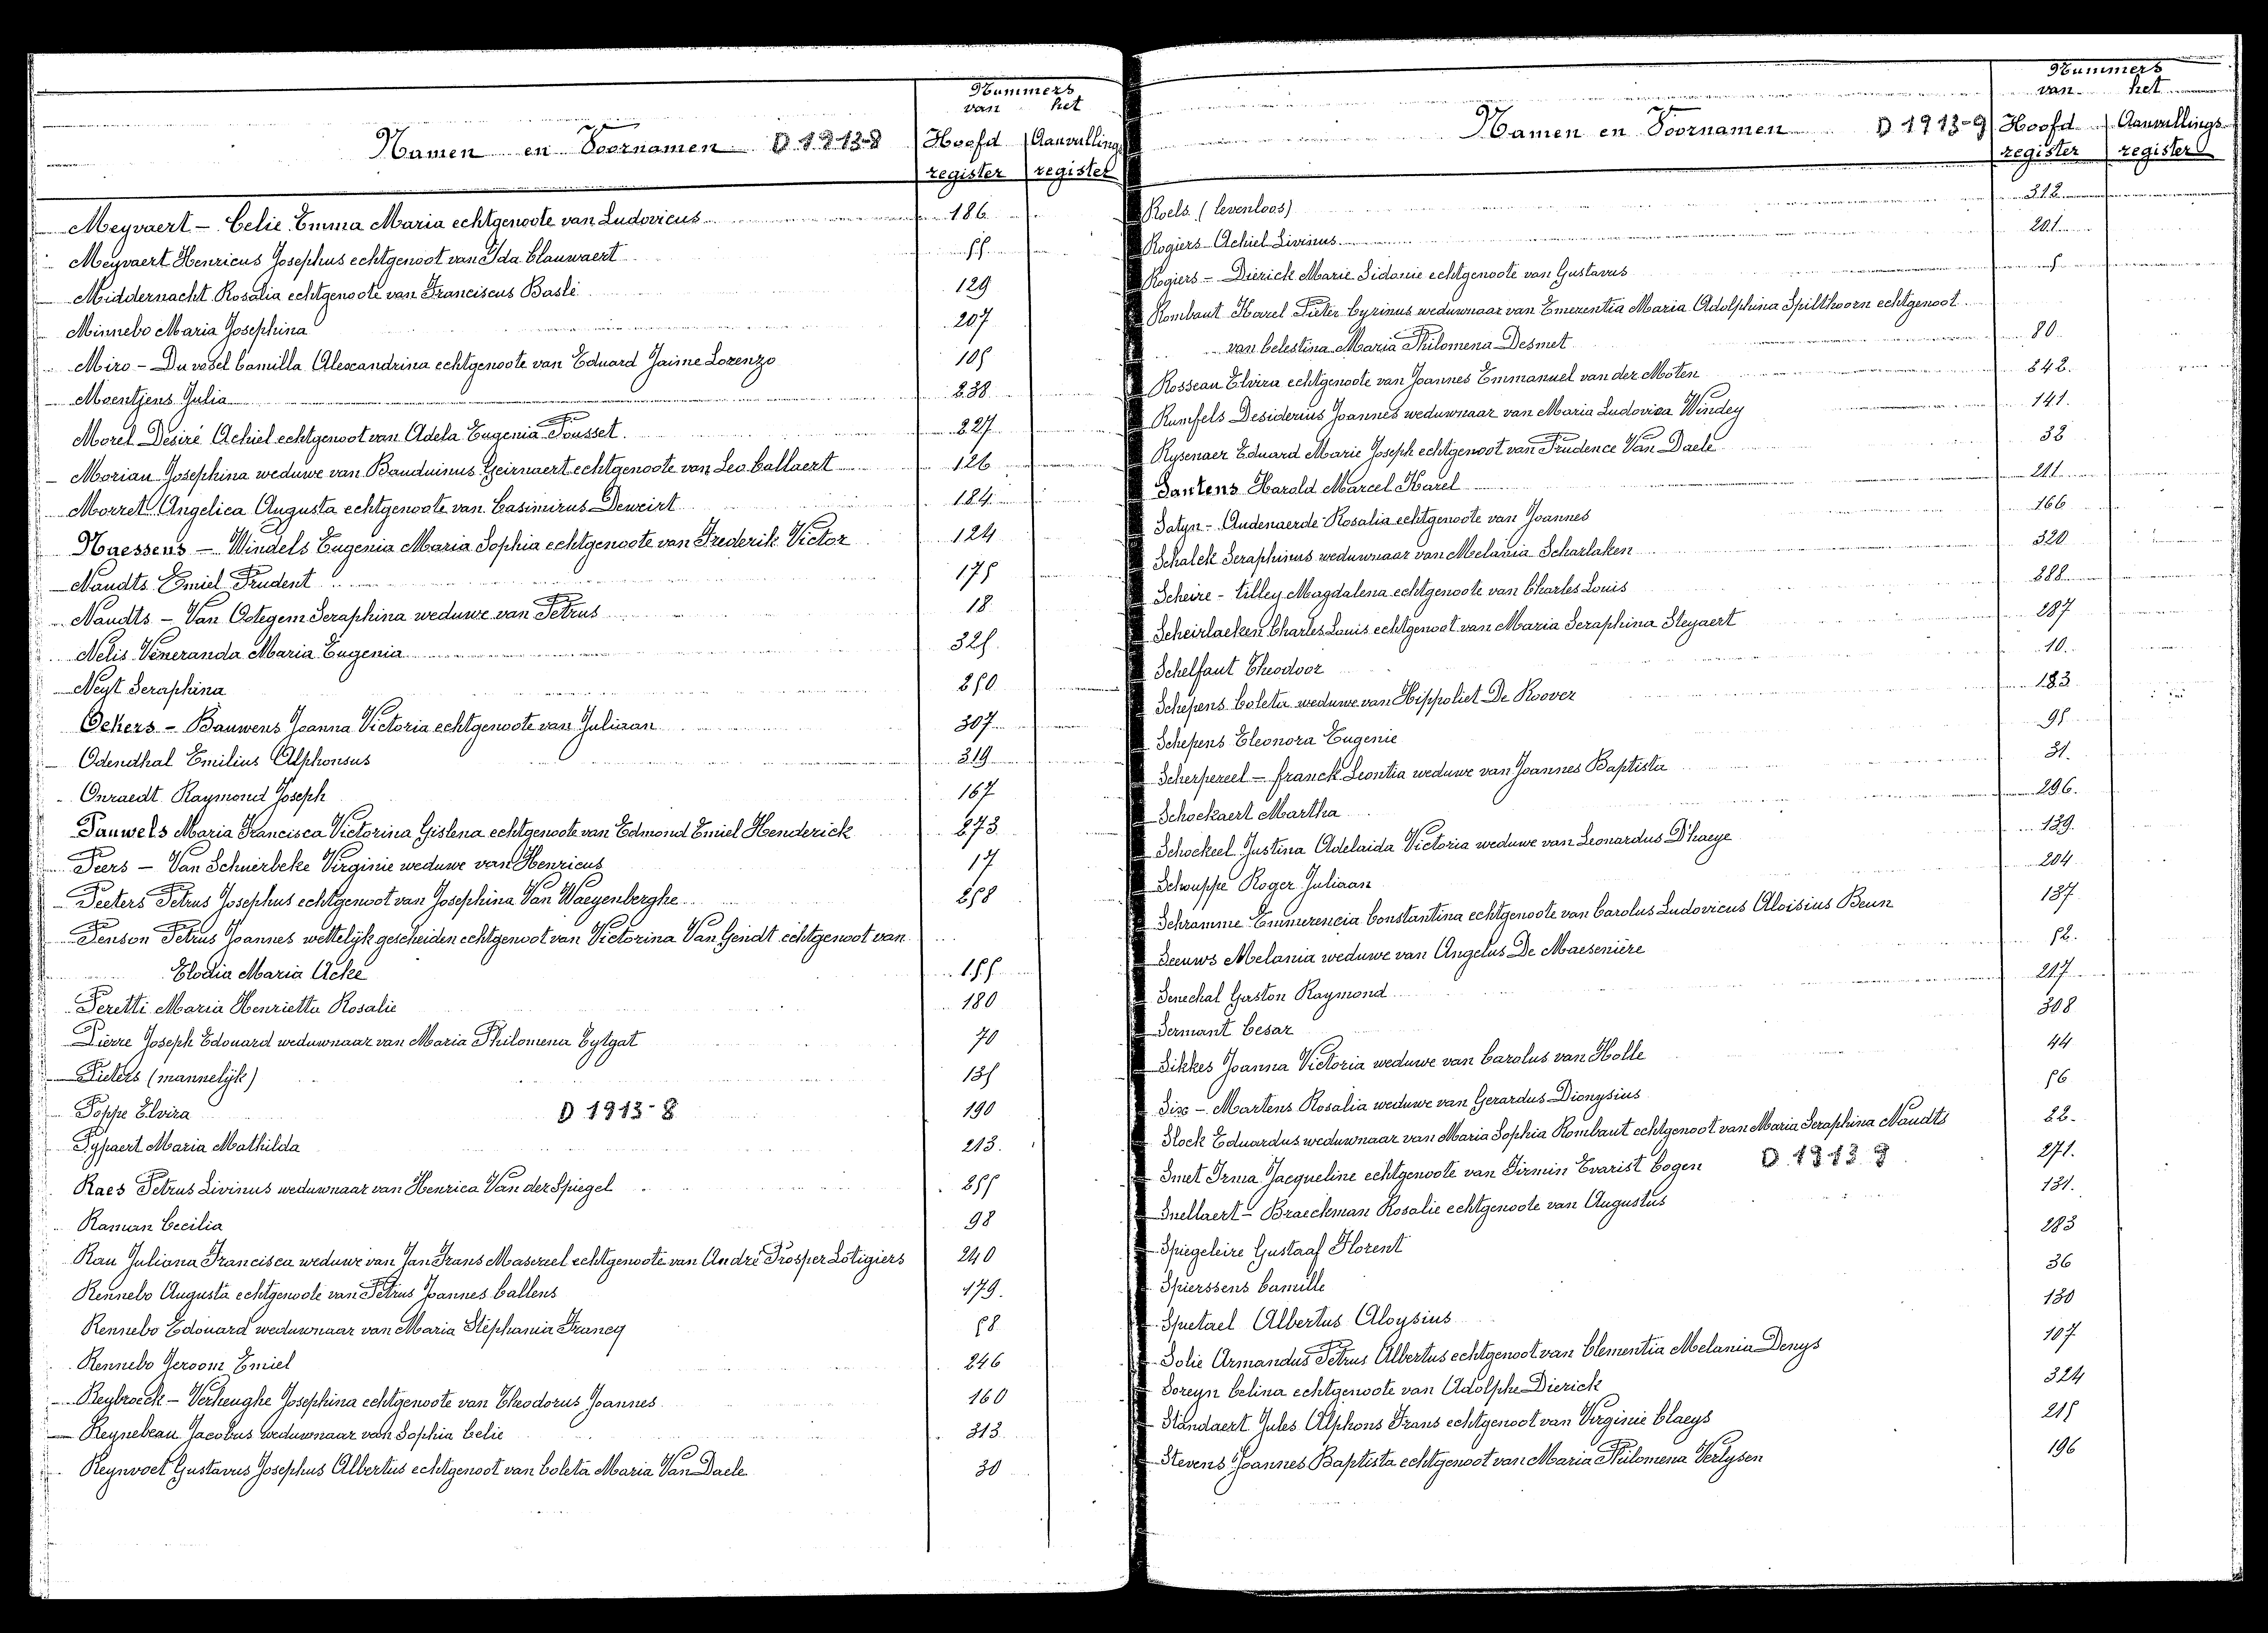 Nummers
van het
Namen en Voornamen D 1913-8 Hoofd Aanvullings
register register
Meyvaert - Celie Emma Maria echtgenoote van Ludovicus 186
Meyvaert Henricus Josephus echtgenoot van Ida Clauwaert 55
Middernacht Rosalia echtgenoote van Franciscus Baslé 129
Minnebo Maria Josephina 207
Miro - Du vosel Camilla Alexandrina echtgenoote van Eduard Jaime Lorenzo 105
Moentjens Julia 238
Morel Désiré Achiel echtgenoot van Adela Eugenia Pousset. 227
Morian Josephina weduwe van Bauduinus Geirnaert echtgenoote van Leo Callaert 126
Morret Angelica Augusta echtgenoote van Casimirus Deweirt 184
Naessens - Windels Eugenia Maria Sophia echtgenoote van Frederik Victor 124
Naudts Emiel Prudent 175
Naudts - Van Ootegem Seraphina weduwe van Petrus 18
Nelis Veneranda Maria Eugenia 325
Neyt Seraphina 250
Ockers - Bauwens Joanna Victoria echtgenoote van Juliaan 307
Odendhal Emilius Alphonsus 319
Onraedt Raymond Joseph 167
Pauwels Maria Francisca Victorina Gislena echtgenoote van Edmond Emiel Henderick 273
Peers - Van Schuerbeke Virginie weduwe van Henricus 17
Peeters Petrus Josephus echtgenoot van Josephina Van Waeyenberghe 258
Penson Petrus Joannes wettelijk gescheiden echtgenoot van Victorina Van Gendt echtgenoot van
Elodia Maria Acke 155
Peretti Maria Henrietta Rosalie 180
Pierre Joseph Edouard weduwnaar van Maria Philomena Eylgat 70
Pieters (mannelijk) 135
Poppe Elvira D 1913-8 190
Pypaert Maria Mathilda 213.
Raes Petrus Livinus weduwnaar van Henrica Van der Spiegel 255
Raman Cecilia 98
Rau Juliana Francisca weduwe van Jan Frans Masereel echtgenoote van André Prosper Lotigiers 240
Rennebo Augusta echtgenoote van Petrus Joannes Callens 179.
Rennebo Edouard weduwnaar van Maria Stéphania Francq 58
Rennebo Jeroom Emiel 246
Reybroeck - Verheughe Josephina echtgenoote van Theodorus Joannes 160
Reynebeau Jacobus weduwnaar van Sophia Celie 313
Reynvoet Gustavus Josephus Albertus echtgenoot van Coleta Maria Van Daele 30
Nummers
van het
Namen en Voornamen D 1913-9 Hoofd Aanvullings
register register
Roels (levenloos) 312
Rogiers Achiel Livinus 201
Rogiers - Dierick Marie Sidonie echtgenoote van Gustavus 5
Rombaut Karel Pieter Cyrinus weduwnaar van Emerentia Maria Adolphina Spilthoorn echtgenoot
van Celestina Maria Philomena Desmet 80
Rosseau Elvira echtgenoote van Joannes Emmanuel van der Moten 242.
Rumfels Desiderius Joannes weduwnaar van Maria Ludovica Windey 141.
Rysenaer Eduard Marie Joseph echtgenoot van Prudence Van Daele 32
Santens Harold Marcel Karel 241
Satyn - Audenaerde Rosalia echtgenoote van Joannes 166
Schalck Seraphinus weduwnaar van Melania Scharlaken 320
Scheire - Tilley Magdalena echtgenoote van Charles Louis 288
Scheirlaeken Charles Louis echtgenoot van Maria Seraphina Steyaert 287
Schelfaut Theodoor 10.
Schepens Coleta weduwe van Hippoliet De Roover 183
Schepens Eleonora Eugenie 95
Scherpereel - Franck Leontia weduwe van Joannes Baptista 31.
Schockaert Martha 296.
Schockeel Justina Adelaida Victoria weduwe van Leonardus D'haeye 139.
Schouppe Roger Juliaan 204
Schramme Emmerencia Constantina echtgenoote van Carolus Ludovicus Aloisius Beun 137
Seeuws Melania weduwe van Angelus De Maesenière 52.
Senechal Gaston Raymond 217
Sermant Cesar 308
Sikkes Joanna Victoria weduwe van Carolus van Holle 44
Six - Martens Rosalia weduwe van Gerardus Dionysius 56
Slock Eduardus weduwnaar van Maria Sophia Rombaut echtgenoot van Maria Seraphina Naudts 22.
Smet Irma Jacqueline echtgenoote van Firmin Evarist Cogen D 1913 9 271.
Snellaert - Braeckman Rosalie echtgenoote van Augustus 131.
Spiegeleire Gustaaf Florent 283
Spierssens Camille 36
Spetael Albertus Aloysius 130
Solie Armandus Petrus Albertus echtgenoot van Clementia Melania Denys 107
Soreyn Celina echtgenoote van Adolphe Dierick 324
Standaert Jules Alphons Frans echtgenoot van Virginie Claeys 215
Stevens Joannes Baptista echtgenoot van Maria Philomena Verlysen 196